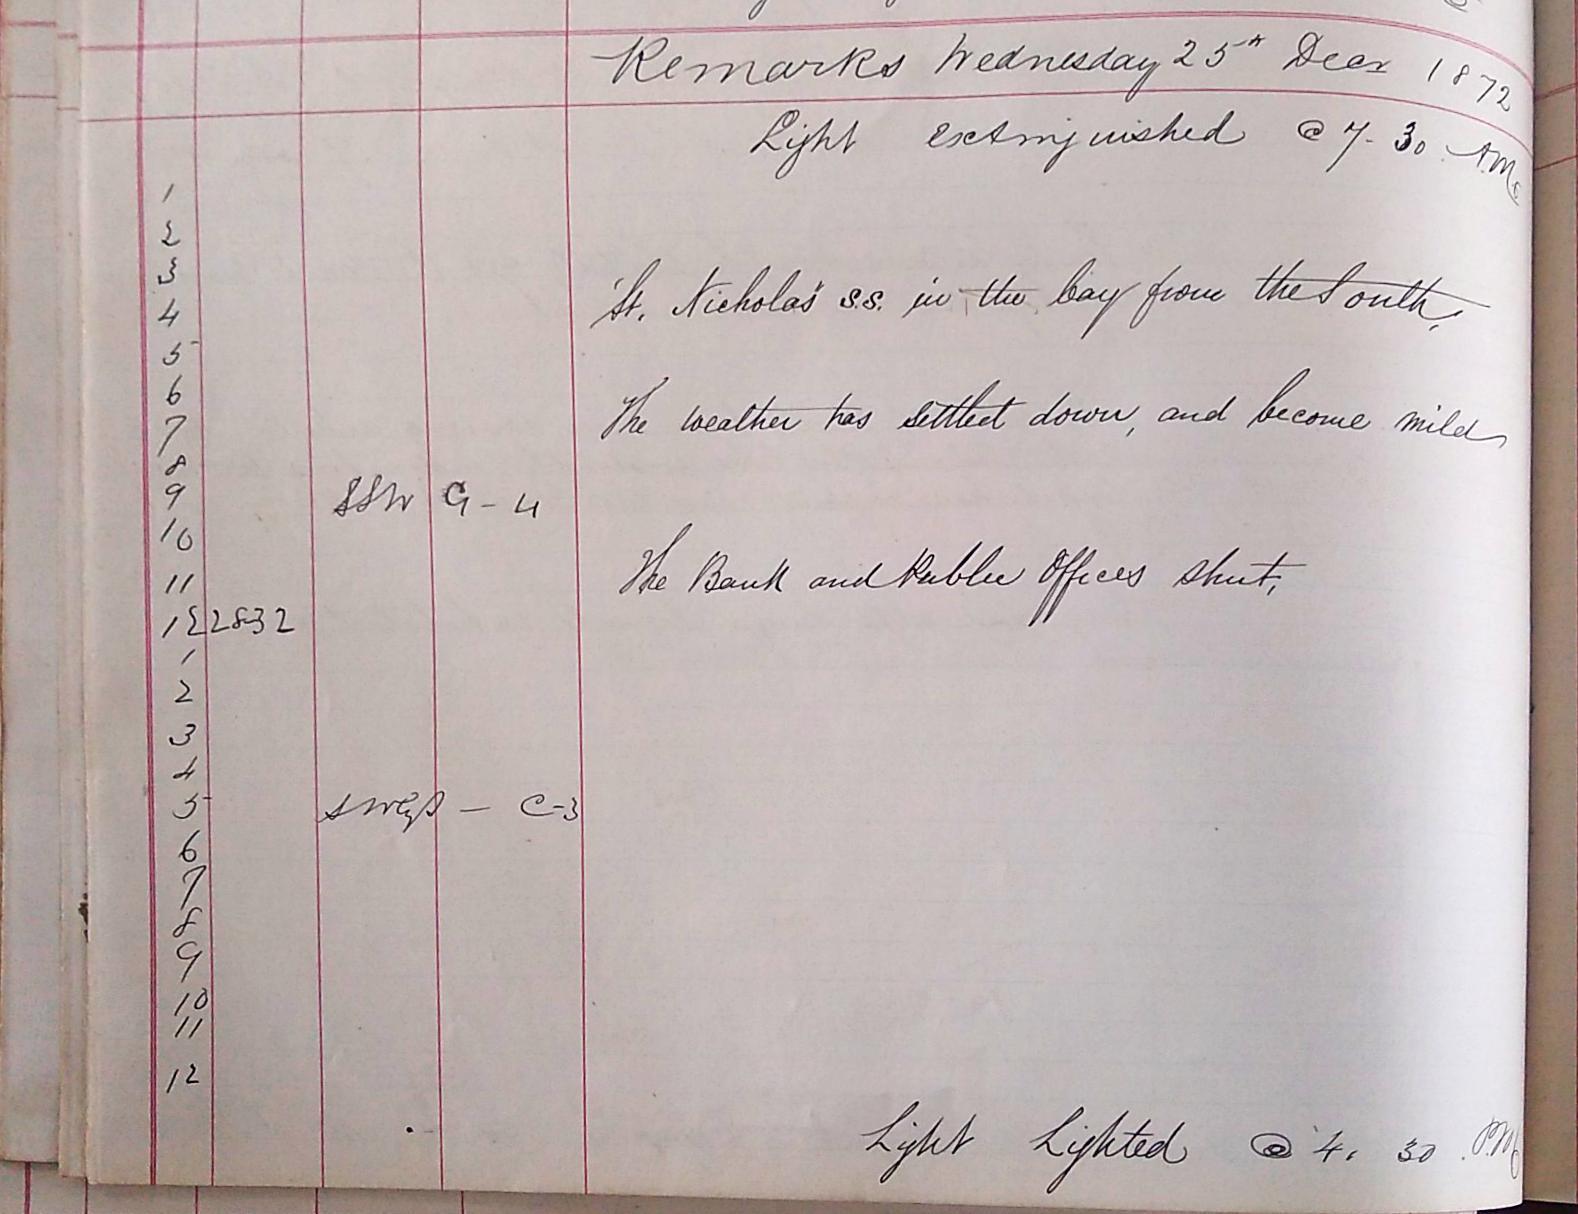 Remarks Wednesday 25th Decr 1872
Light extinguished @ 7-30 A.M.
1
2
3
St. Nicholas s.s. in the bay from the South,
4
5
6
The weather has settled down, and become mild
7
8
9 SSW G-4
10
The Bank and Public Offices shut,
11
12 2832
1
2
3
4
5 SWbyS - C-3
6
7
8
9
10
11
12
Light Lighted @ 4. 30 P.M.